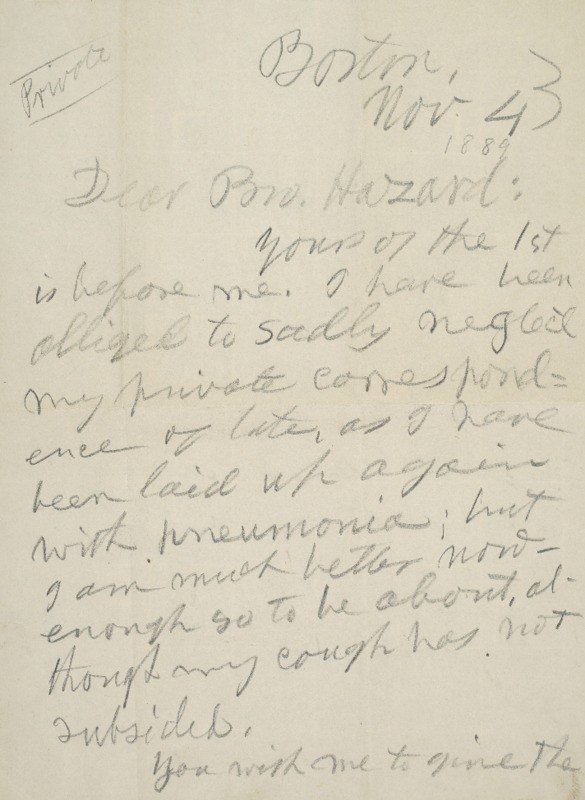 Private
Boston,
Nov. 4
1889
Dear Bro. Hazard:
Yours of the 1st
is before me. I have been
obliged to sadly neglect
my private correspond=
ence of late, as I have
been laid up again
with pneumonia; but
I am much better now–
enough so to be about, al-
though my cough has not
subsided.
You wish me to give the